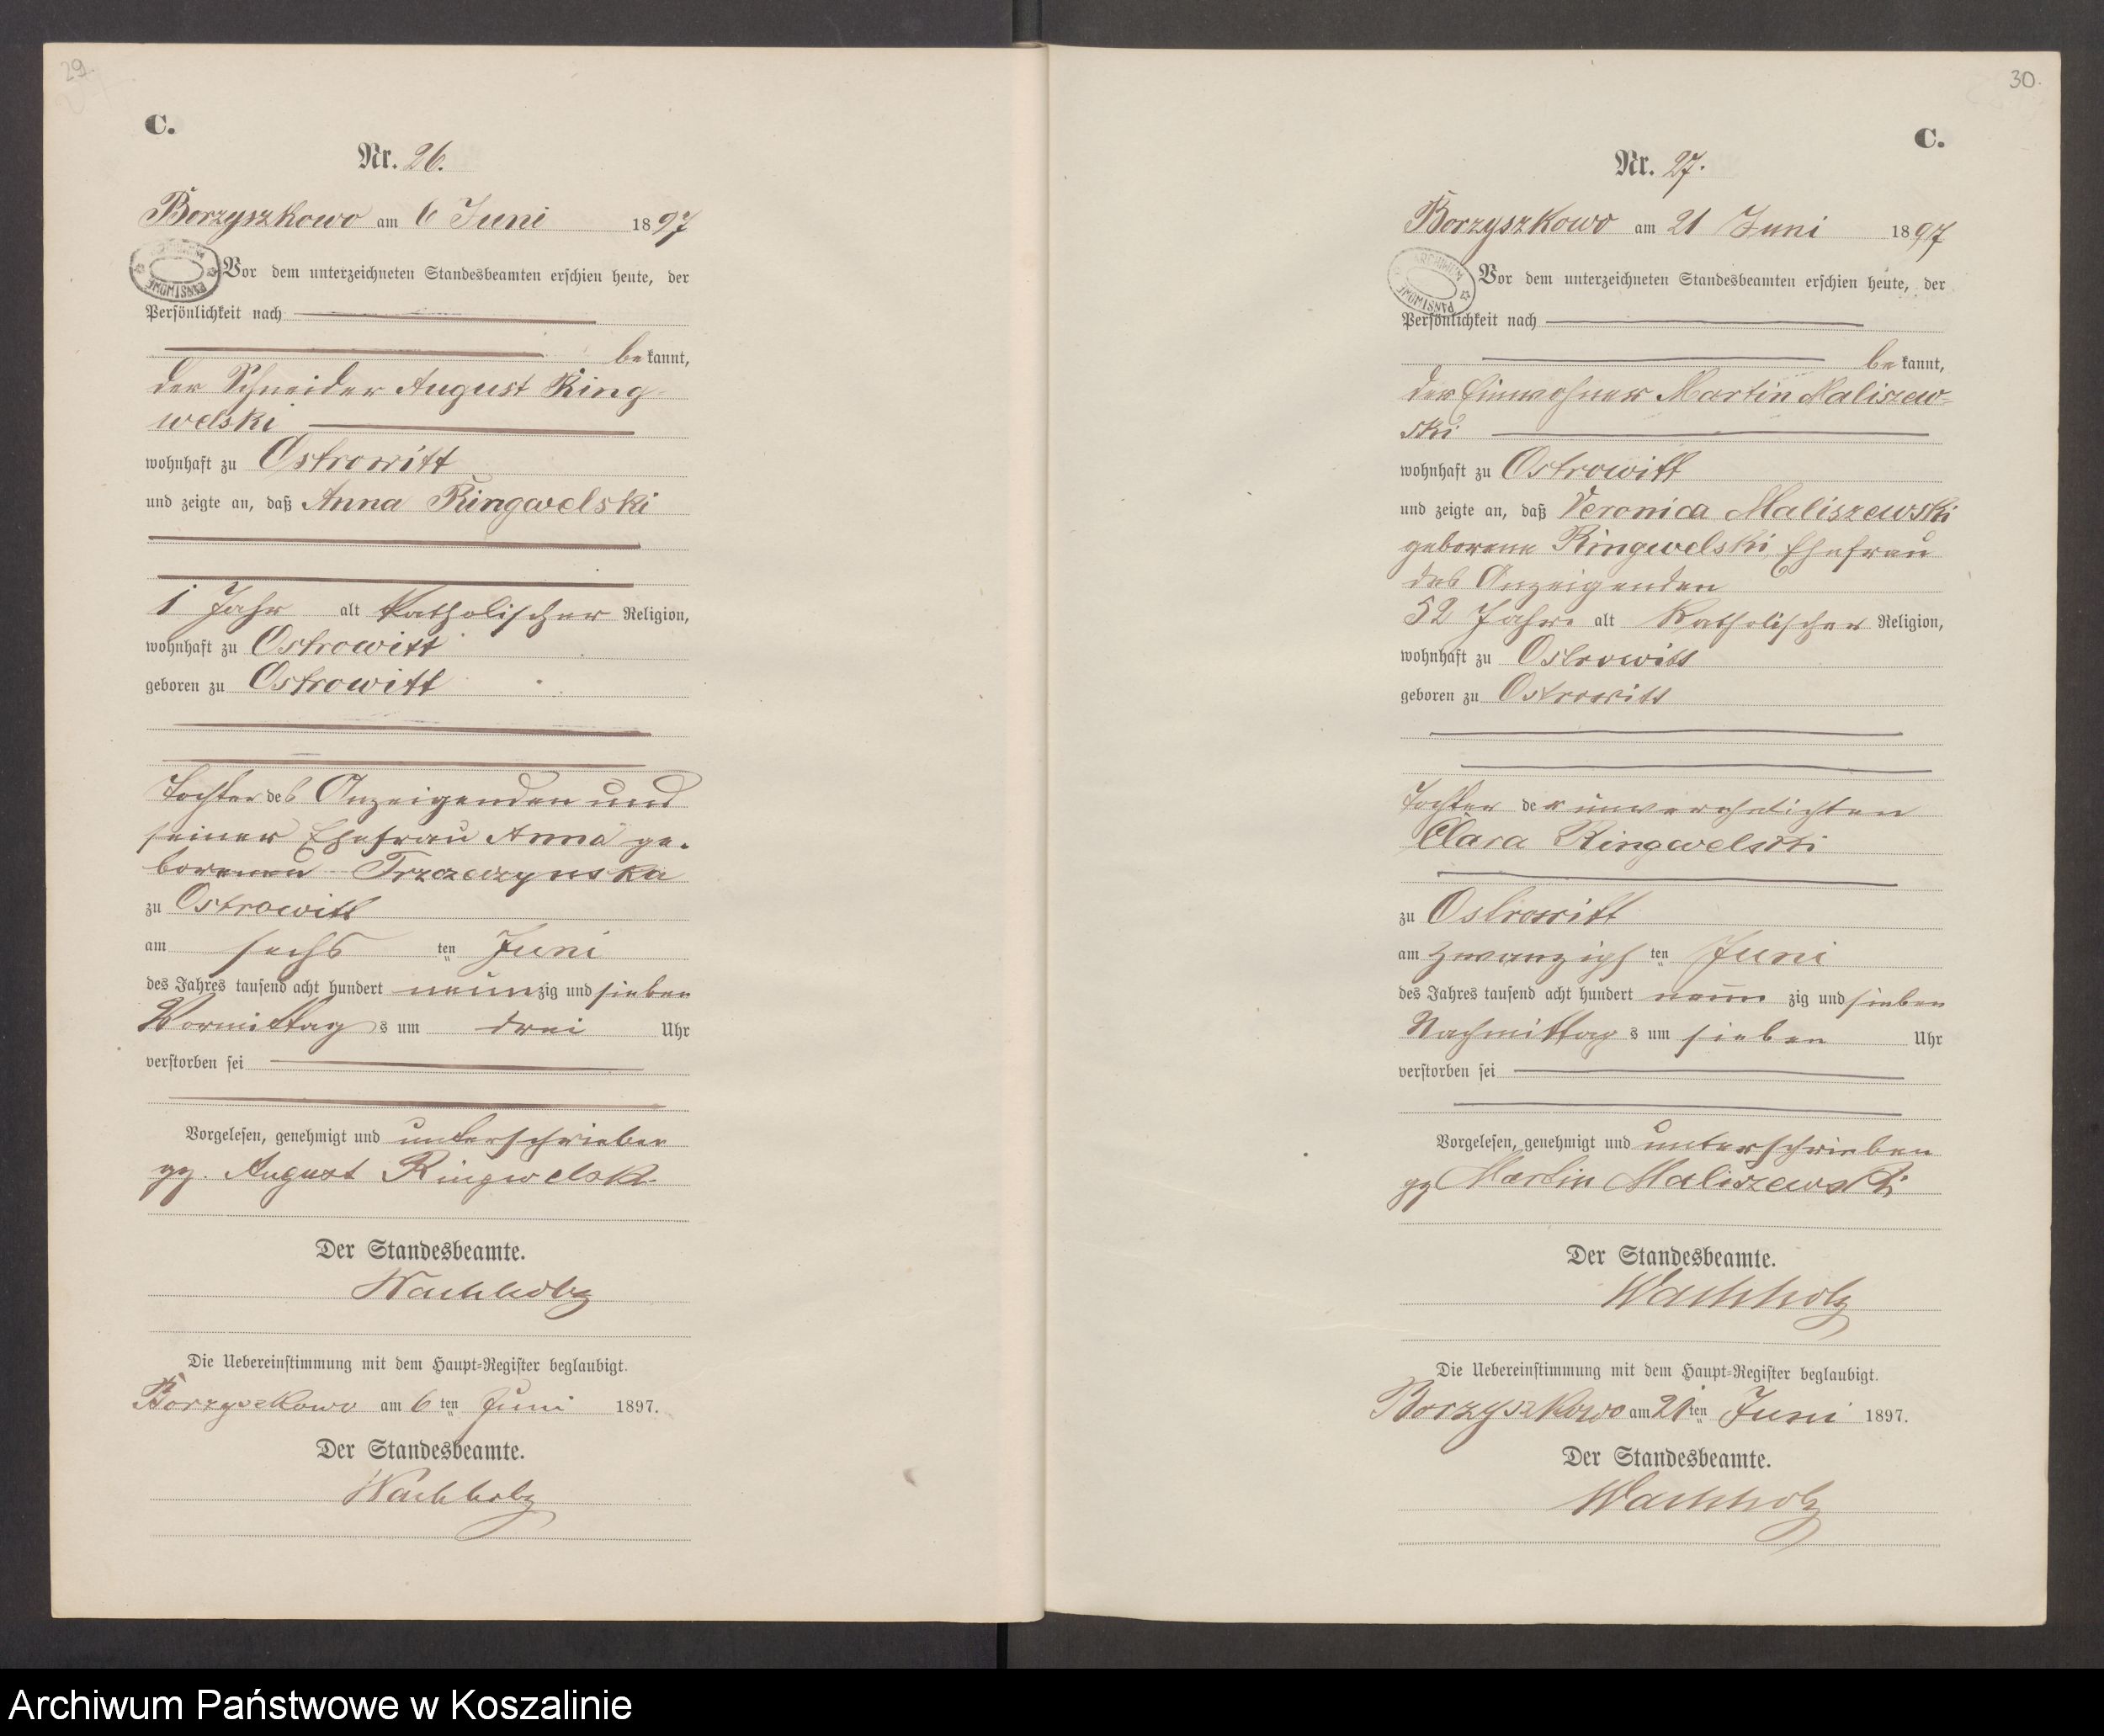 29.
C.
Nr. 26.
Borzyszkowo am 6 Juni 1897
Vor dem unterzeichneten Standesbeamten erschien heute, der
Persönlichkeit nach
bekannt,
der Schneider August Ring-
welski
wohnhaft zu Ostrowitt
und zeigte an, daß Anna Ringwelski
1 Jahr alt katholischer Religion,
wohnhaft zu Ostrowitt
geboren zu Ostrowitt
Tochter des Anzeigenden und
seiner Ehefrau Anna ge-
borenen
zu Ostrowitt
am sechs ten Juni
des Jahres tausend acht hundert neunzig und sieben
Vormittags um drei Uhr
verstorben sei
Vorgelesen, genehmigt und unterschrieben
gz. August Ringwelski
Der Standesbeamte.
Wachholz
Die Uebereinstimmung mit dem Haupt-Register beglaubigt.
Borzyszkowo am 6 ten Juni 1897.
Der Standesbeamte.
Wachholz
30.
C.
Nr. 27.
Borzyszkowo am 21 Juni 1897
ARCHIWUM PAŃSTWOWE
Vor dem unterzeichneten Standesbeamten erschien heute, der
Persönlichkeit nach
bekannt,
der Einwohner Martin Maliszew-
ski
wohnhaft zu Ostrowitt
und zeigte an, daß Veronica Maliszewski
geborene Ringwelski, Ehefrau
des Anzeigenden
52 Jahre alt katholischer Religion,
wohnhaft zu Ostrowitt
geboren zu Ostrowitt
Tochter der unverehelichten
Clara Ringwelski
zu Ostrowitt
am zwanzigs ten Juni
des Jahres tausend acht hundert neun zig und sieben
Nachmittags um sieben Uhr
verstorben sei
Vorgelesen, genehmigt und unterschrieben
gz Martin Maliszewski
Der Standesbeamte.
Wachholz
Die Uebereinstimmung mit dem Haupt-Register beglaubigt.
Borzyszkowo am 21 ten Juni 1897.
Der Standesbeamte.
Wachholz
Archiwum Państwowe w Koszalinie